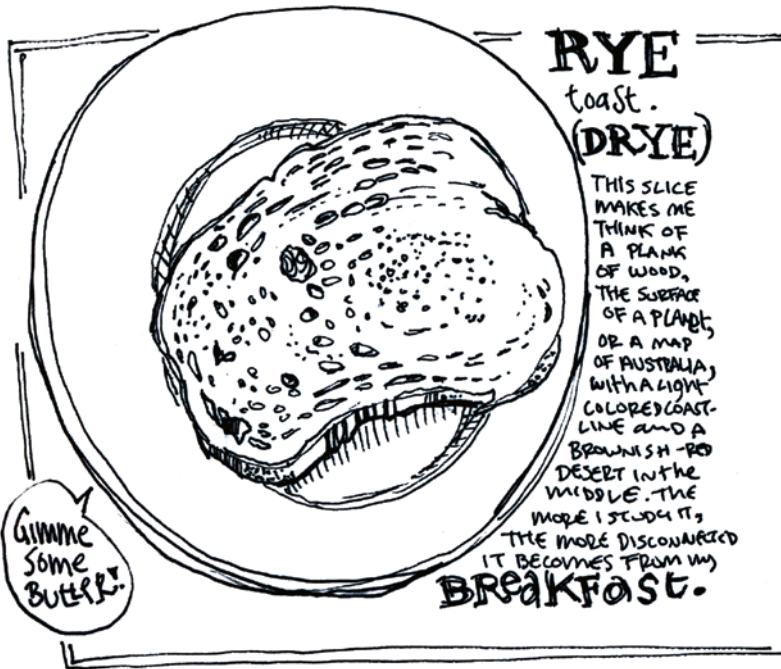 RYE
toast.
(DRYE)
THIS SLICE
MAKES ME
THINK OF
A PLANK
OF WOOD,
THE SURFACE
OF A PLANET,
OR A MAP
OF AUSTRALIA,
WITH A LIGHT
COLORED COAST-
LINE AND A
BROWNISH-RED
DESERT IN THE
MIDDLE. THE
MORE I STUDY IT,
THE MORE DISCONNECTED
IT BECOMES FROM MY
BREAKFAST.
GIMME
SOME
BUTTER!